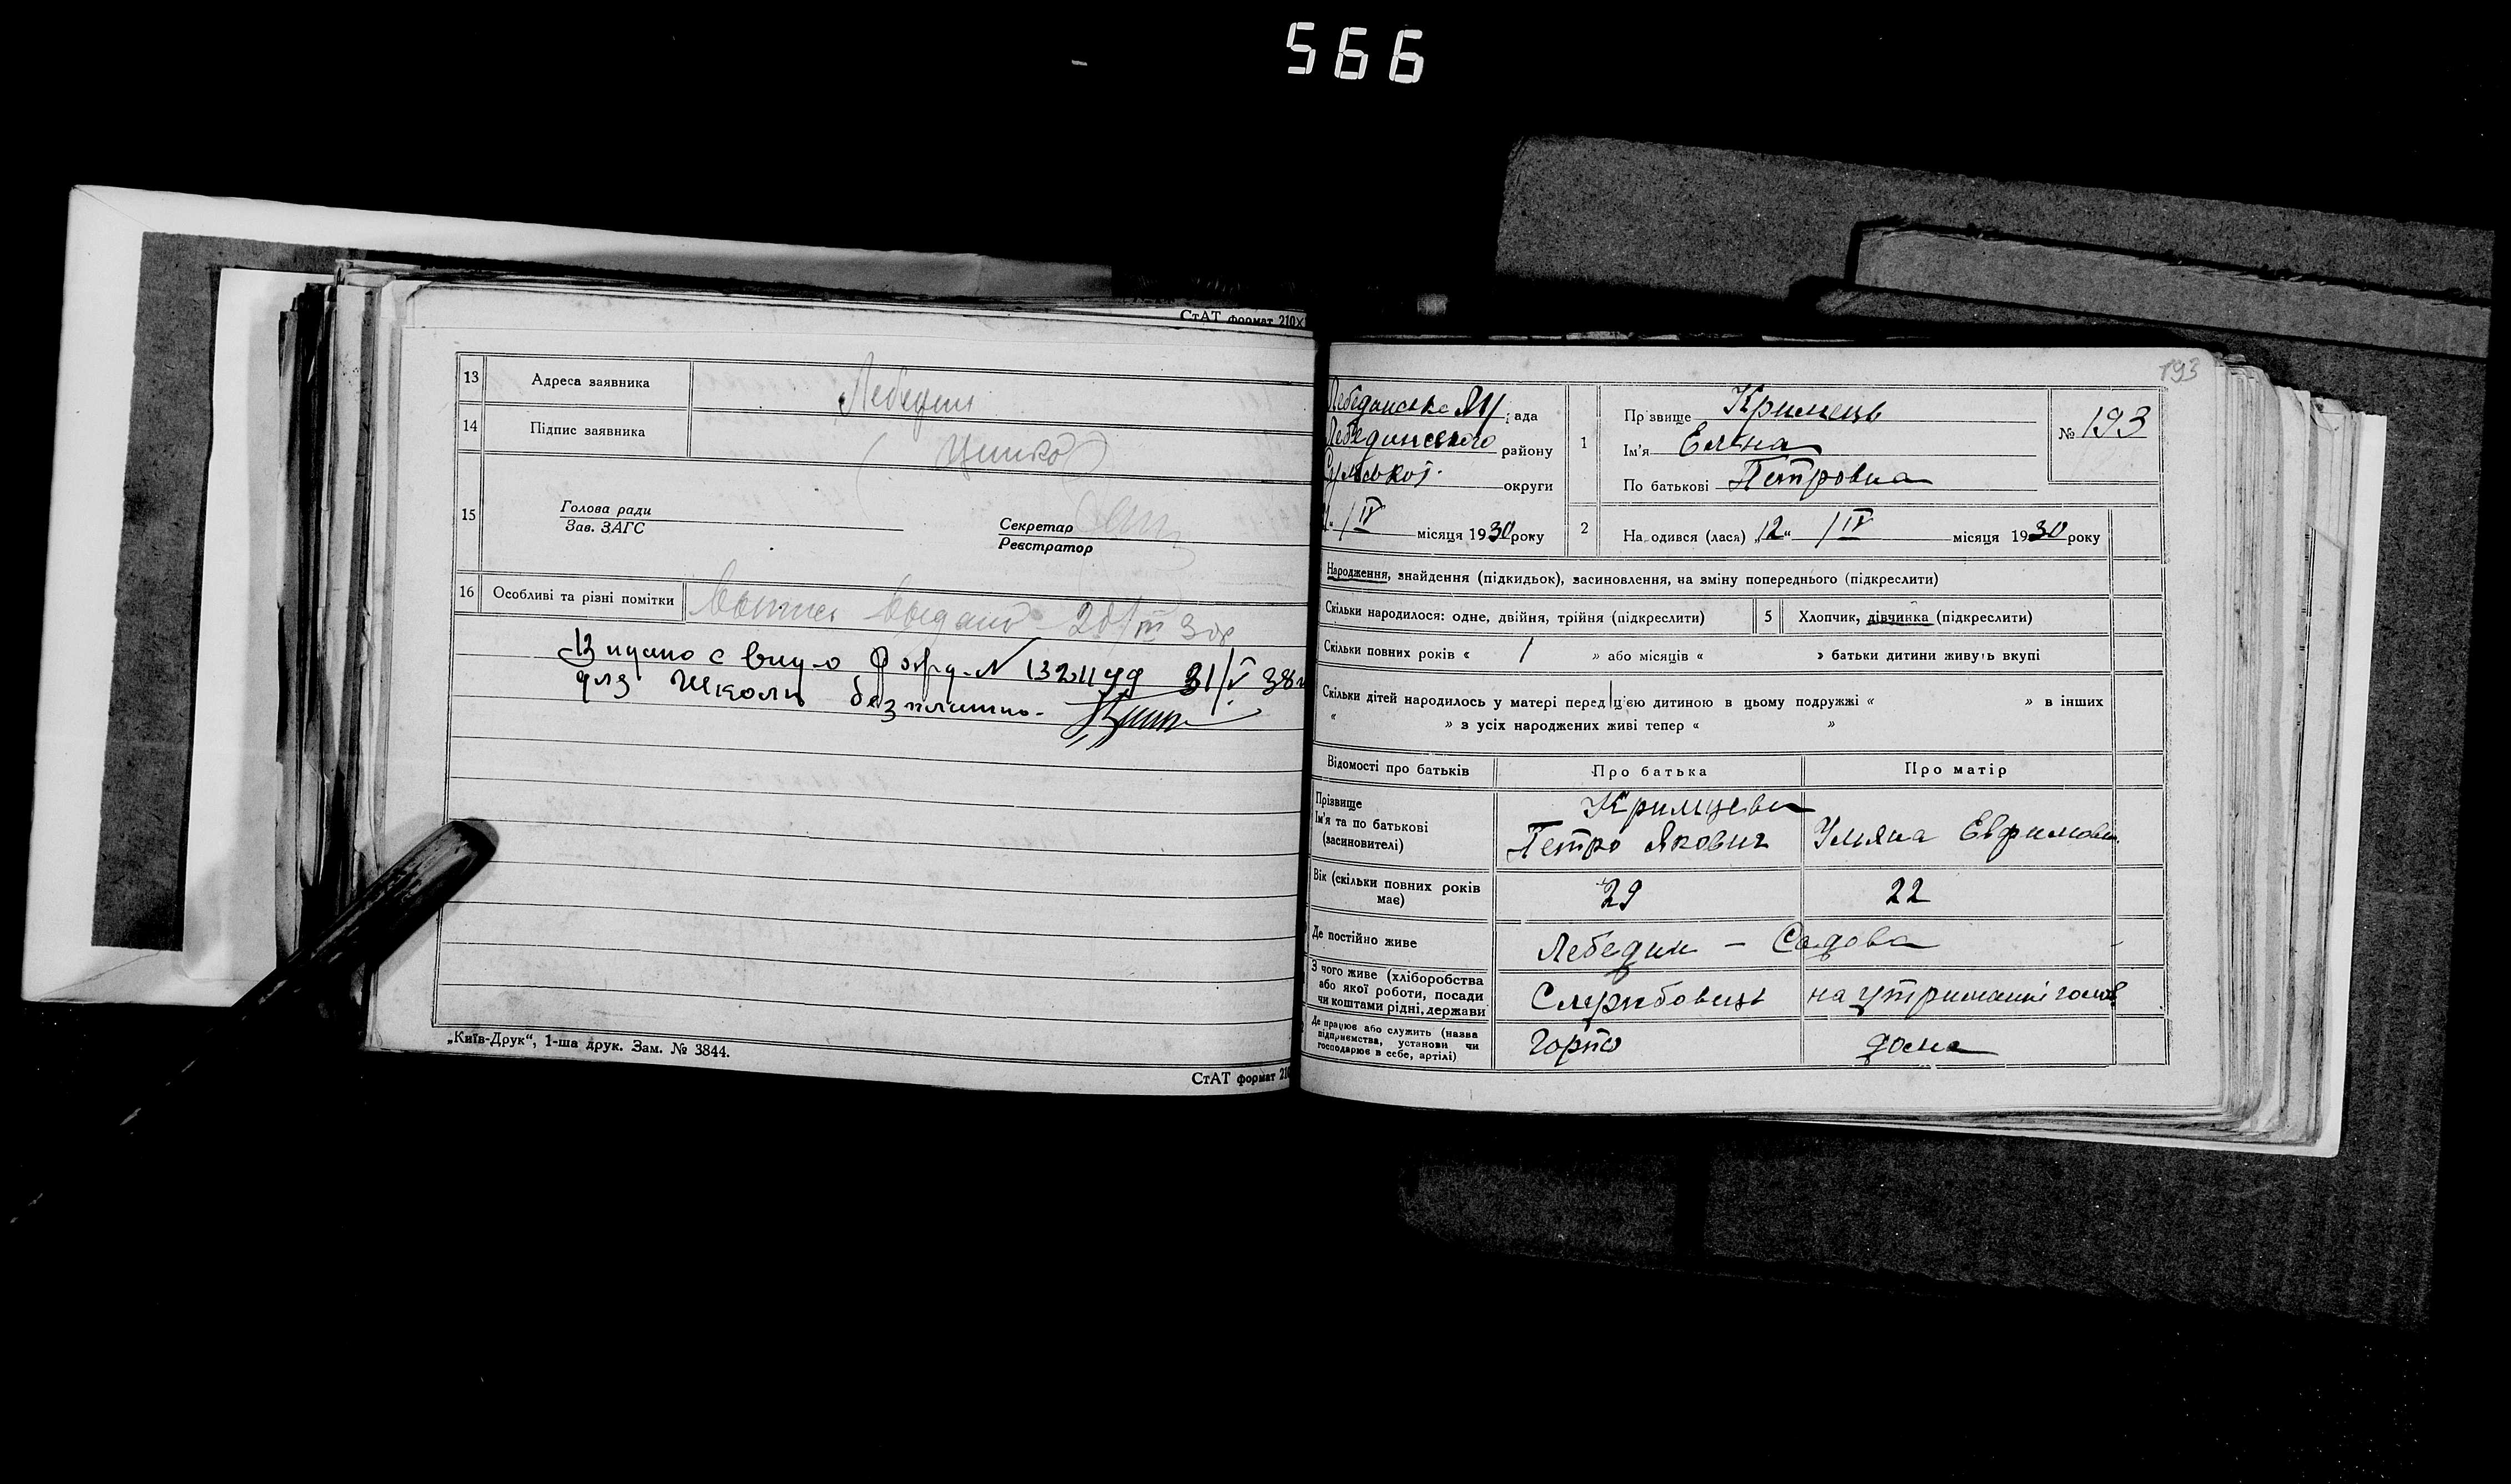 566
СтАТ формат 210×
13 Адреса заявника Лебедин
14 Підпис заявника
15 Голова ради
Зав. ЗАГС
Секретар
Реєстратор
16 Особливі та різні помітки
Видано с 31/V 38
для школи безплатно.
„Київ-Друк“, 1-ша друк. Зам. № 3844.
СтАТ формат 210
193
ада
Лебединського району
Сумської округи
IV місяця 1930 року
1 Прізвище Кримець
Ім'я Елена
По батькові Петровна
№ 193
2 На одився (лася) „12“ IV місяця 1930 року
Народження, знайдення (підкидьок), засиновлення, на зміну попереднього (підкреслити)
Скільки народилося: одне, двійня, трійня (підкреслити) 5 Хлопчик, дівчинка (підкреслити)
Скільки повних років « 1 » або місяців « » батьки дитини живуть вкупі
Скільки дітей народилось у матері перед цією дитиною в цьому подружжі « » в інших
« » з усіх народжених живі тепер « »
Відомості про батьків Про батька Про матір
Прізвище
Ім'я та по батькові
(засиновителі)
Кримцеви
Петро Якович Уляна
Вік (скільки повних років має) 29 22
Де постійно живе Лебедин – Садова
З чого живе (хліборобства
або якої роботи, посади
чи коштами рідні, держави
Службовець на утриманні
Де працює або служить (назва
підприємства, установи чи
господарює в себе, артілі)